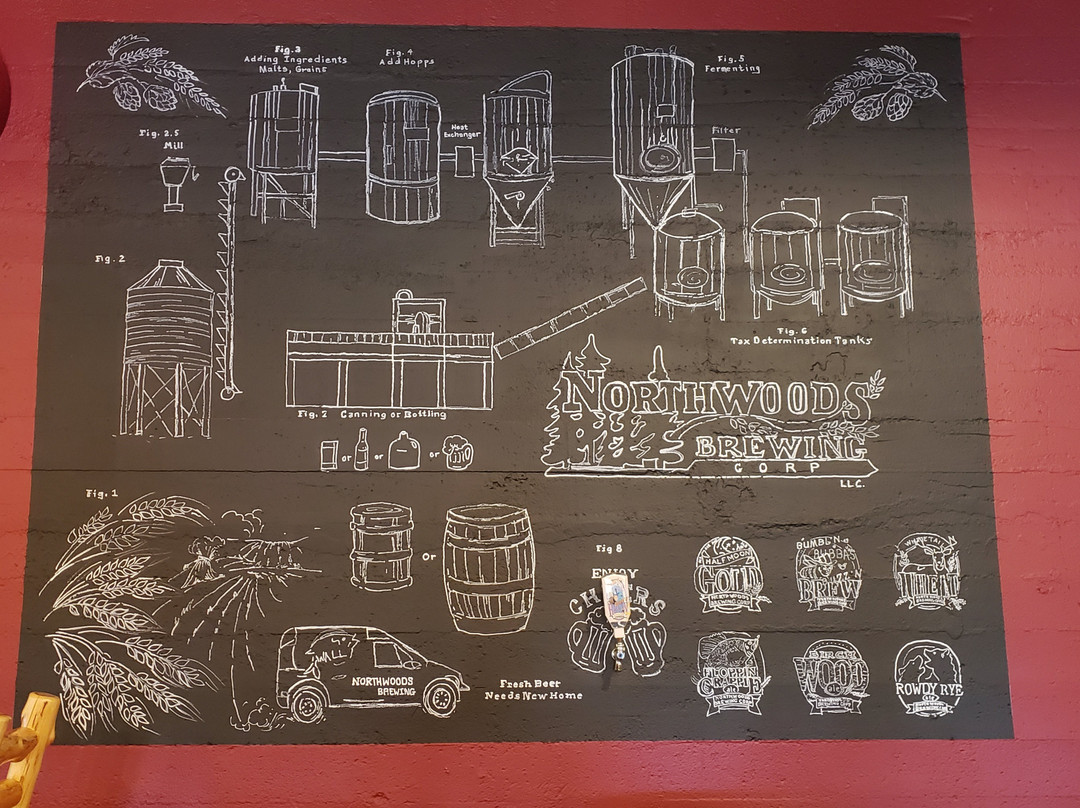 Fig. 3
Adding Ingredients
Malts, Grains
Fig. 4
Add Hopps
Fig. 5
Fermenting
Fig. 2.5
Mill
Heat
Exchanger
Filter
Fig. 2
Fig. 6
Tax Determination Tanks
Fig. 7 Canning or Bottling
or or or
NORTHWOODS
BREWING
CORP
LLC.
Fig. 1
Or
Fig 8
ENJOY
CHEERS
HALF MOON
GOLD
NORTHWOODS
BREWING CORP
BUMBL'N
BUBBAS
BREW
WHITE TAIL
WHEAT
WALL
NORTHWOODS
BREWING
Fresh Beer
Needs New Home
FLOPPIN
CRAPPIE
Ale
WOOD
Ale
ROWDY RYE
Ale